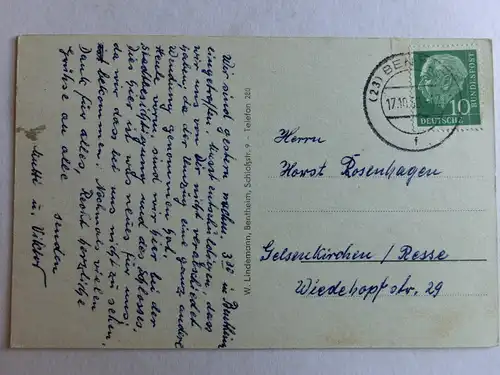 Wir sind gestern nachm. 3.30 in Bentheim
eingetroffen. Musst entschuldigen, dass
wir uns von Dir nicht verabschiedet
haben, da der Umzug eine ganz andere
Wendung genommen hat.
Heute sind wir hier bei der
Stadtbesichtigung und des Schlosses.
Dies hier ist was neues für uns
da wir das bei uns nicht zu sehen
bekommen. Nochmals vielen
Dank für alles, Recht herzliche
Grüsse an alle
senden
Mutti u. Viktor
W. Lindemann, Bentheim, Schloßstr. 9 - Telefon 280
(23) BEN
17.10.5
f
DEUTSCHE
BUNDESPOST
10
Herrn
Horst Rosenhagen
Gelsenkirchen / Resse
Wiedehopfstr. 29